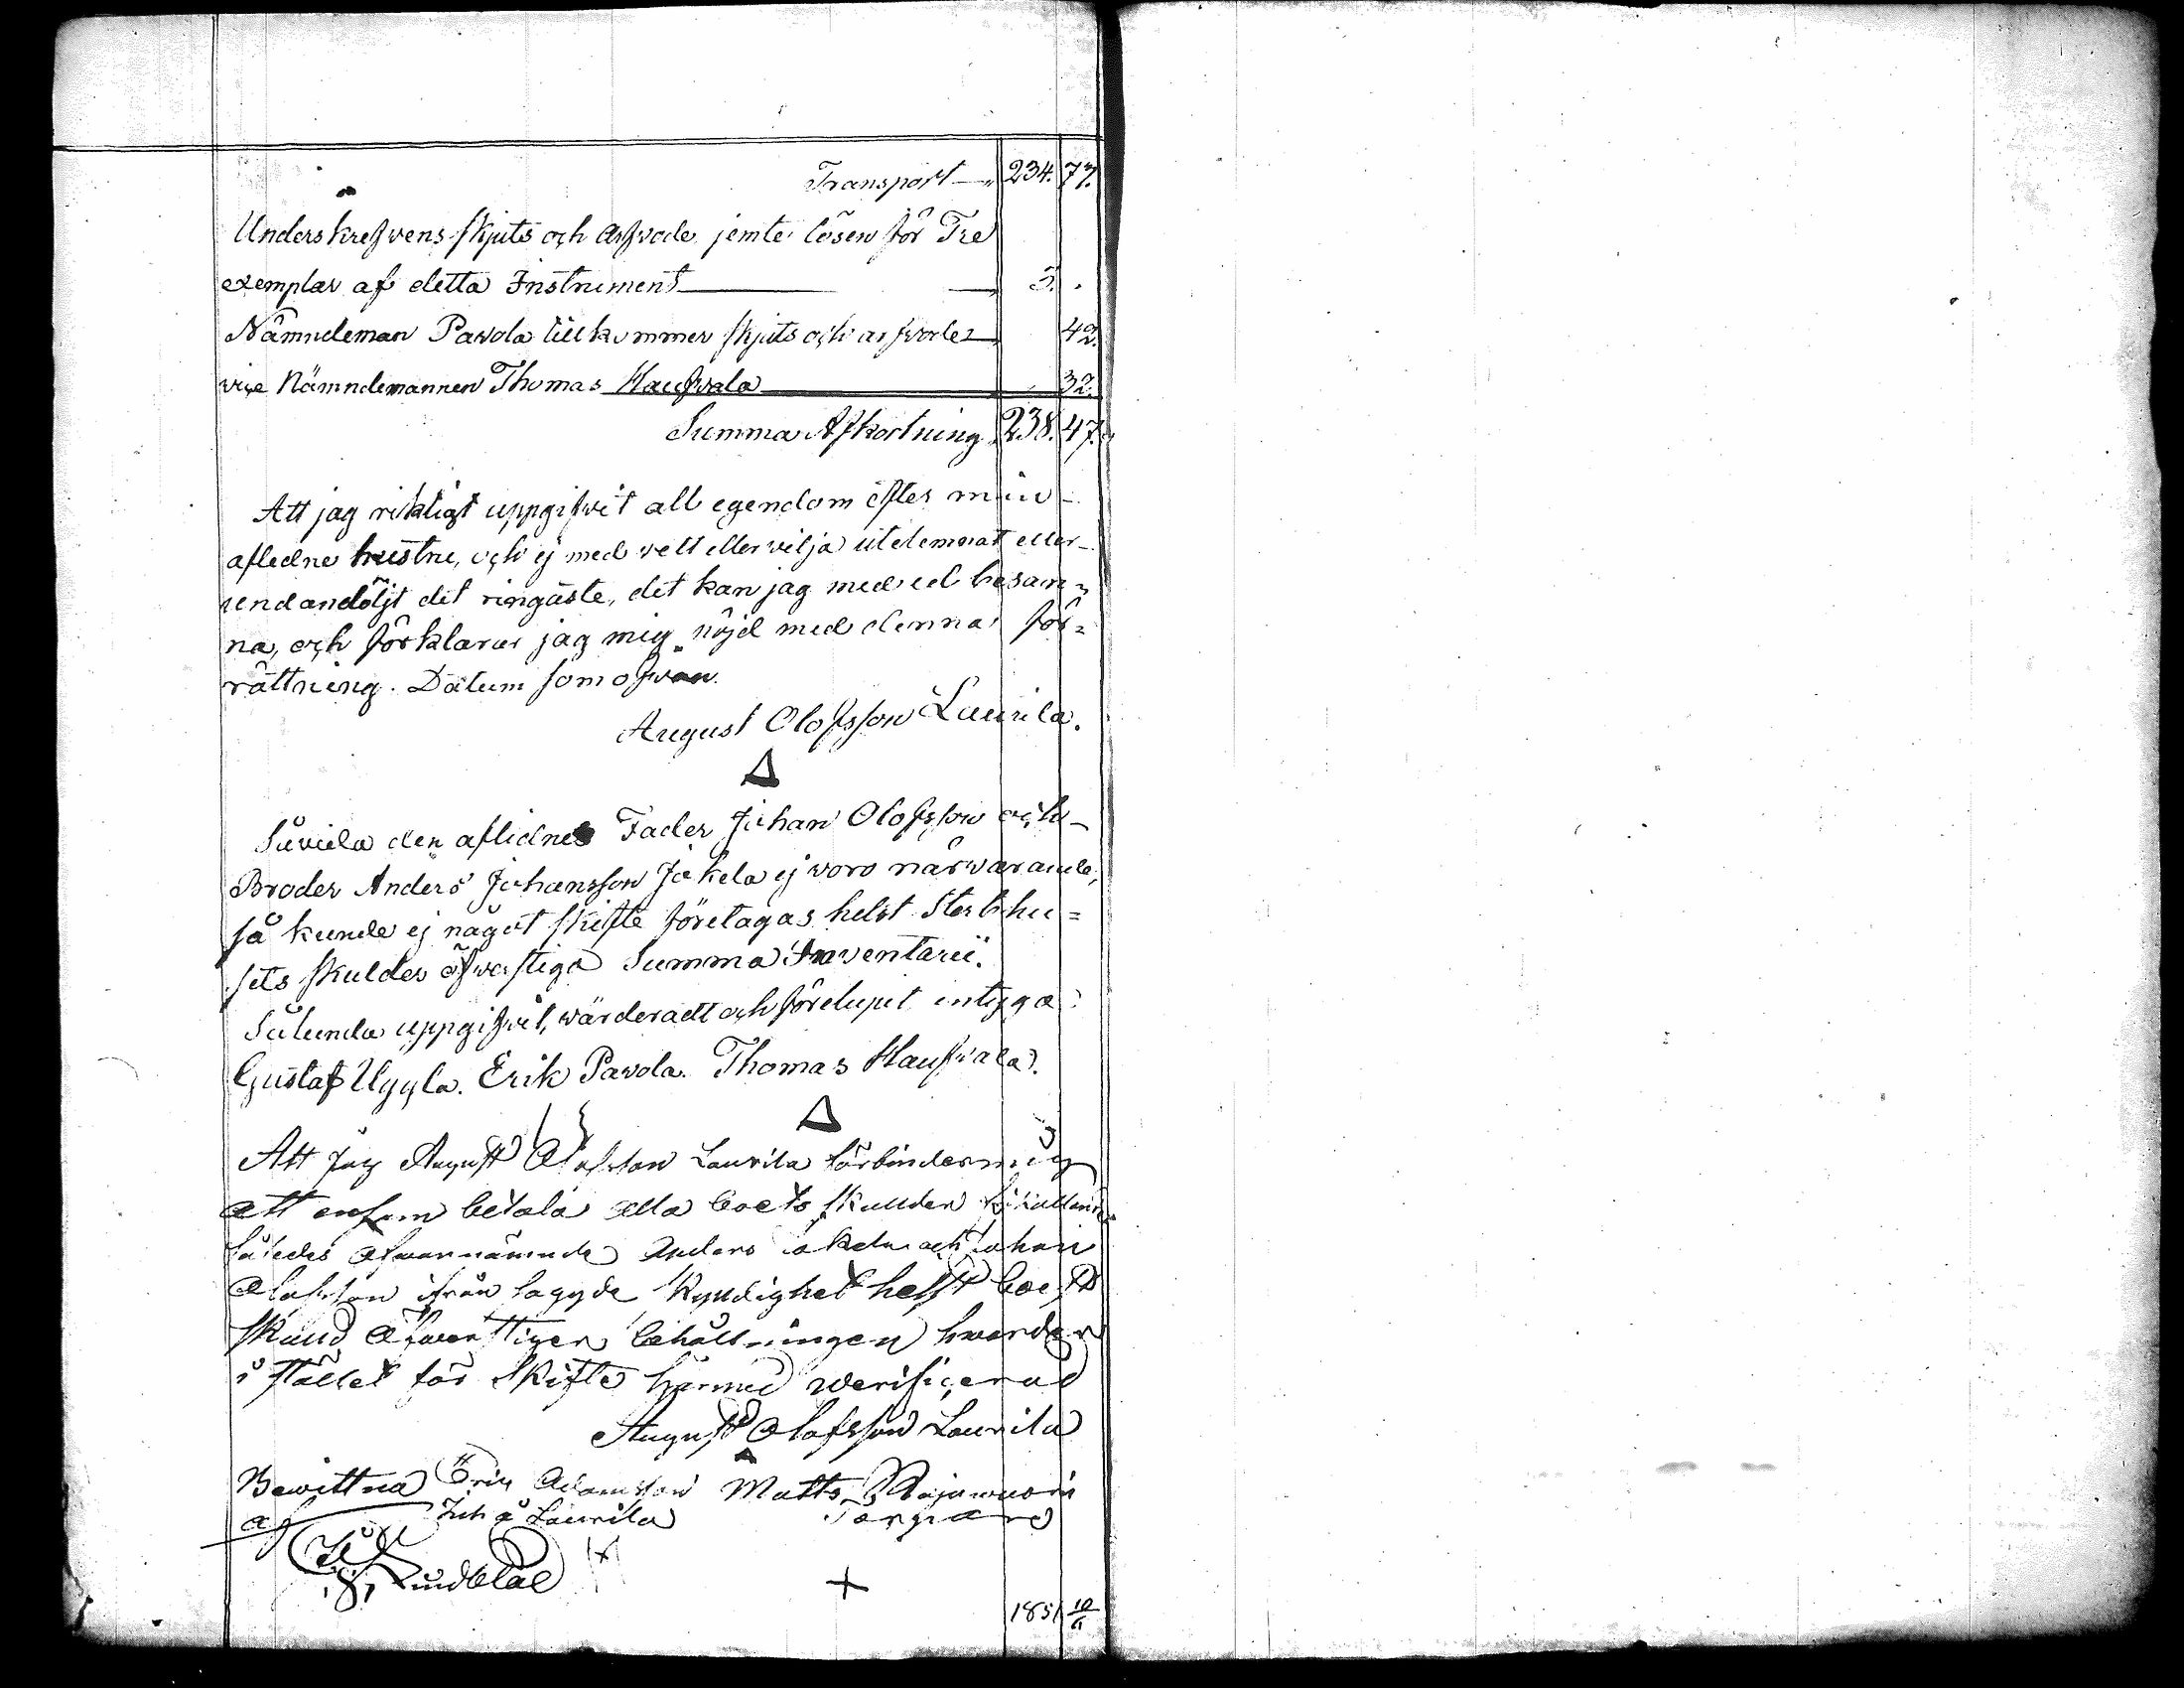 Transport 234. 73.
Underskrefvens skjuts och arfvode jemte lösen för Tre
exemplar af detta Instrument 3. .
Nämndeman Pavola tillkommer skjuts och arfvode 42.
vice Nämndemannen Thomas Haufvala 32.
Summa Afkortning 238. 47.
Att jag riktigt uppgifvit all egendom efter min
afledne hustru, och ej med vett eller vilja utelemnat eller
undandöljt det ringaste, det kan jag med ed besan=
na, och förklarar jag mig nöjd med denna för=
rättning. Datum som ofvan.
August Olofsson Laurila.
Såvida den aflidnes Fader Johan Olofsson och
Broder Anders Johansson Jokela ej voro närvarande,
så kunde ej något skifte företagas helst Sterbhu=
sets skulder öfverstiga Summa Inventarii.
Sålunda uppgifvit, värderadt och förelupet intyga:
Gustaf Uggla. Erik Pavola. Thomas Haufvala.
Att jag August Olofsson Laurila förbinder mig
att ensam betala alla boets skulder
således ofvannämnde Anders Jokela och Johan
Olofsson ifrån laggde skyldighet helst boets
skuld öfverstiger behållningen hvarder
i stället för skifte härmed verifierad
August Olofsson Laurila
Bevittna Erik Adamsson Matts
af Juhå Laurila
Lindblad
1851 10/6